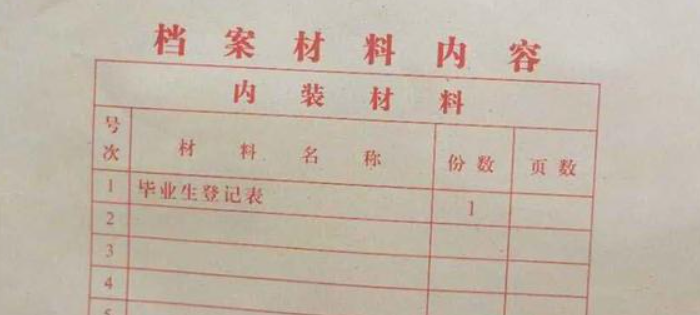 档案材料内容
内装材料
号次 材料名称 份数 页数
1 毕业生登记表 1
2
3
4
5